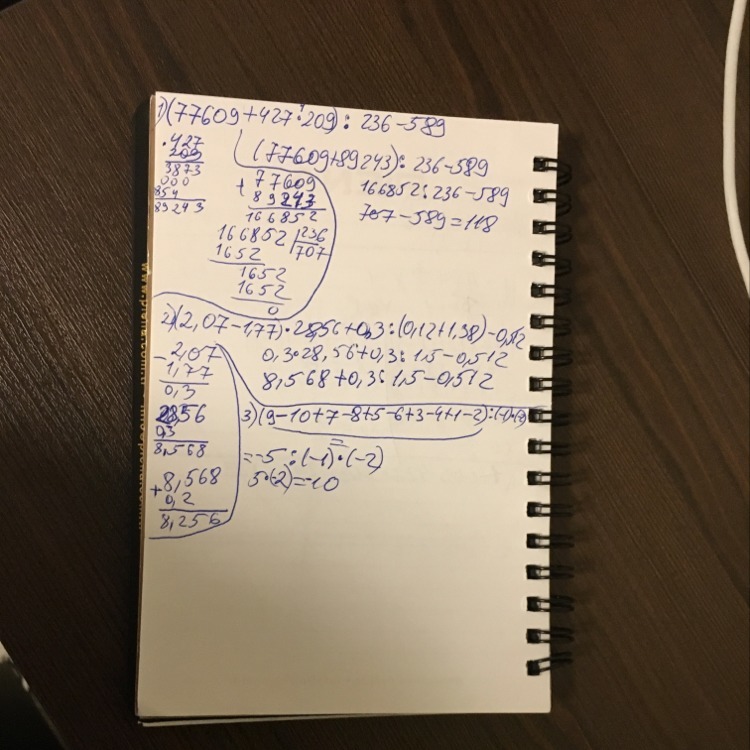 1)(77609+427·209): 236-589
·427
209
3873
000
854
89243
(77609+89243): 236-589
166852:236-589
707-589=118
+77609
89243
166852
166852 236
1652 707
1652
1652
0
2)(2,07-1,77)·28,56+0,3:(0,12+1,38)-0,512
0,3·28,56+0,3:1,5-0,512
8,568+0,3:1,5-0,512
-2,07
1,77
0,3
28,56
0,3
8,568
+8,568
0,2
8,256
3)(9-10+7-8+5-6+3-4+1-2):(-1)·(-2)
=
=-5:(-1)·(-2)
5·(-2)=-10